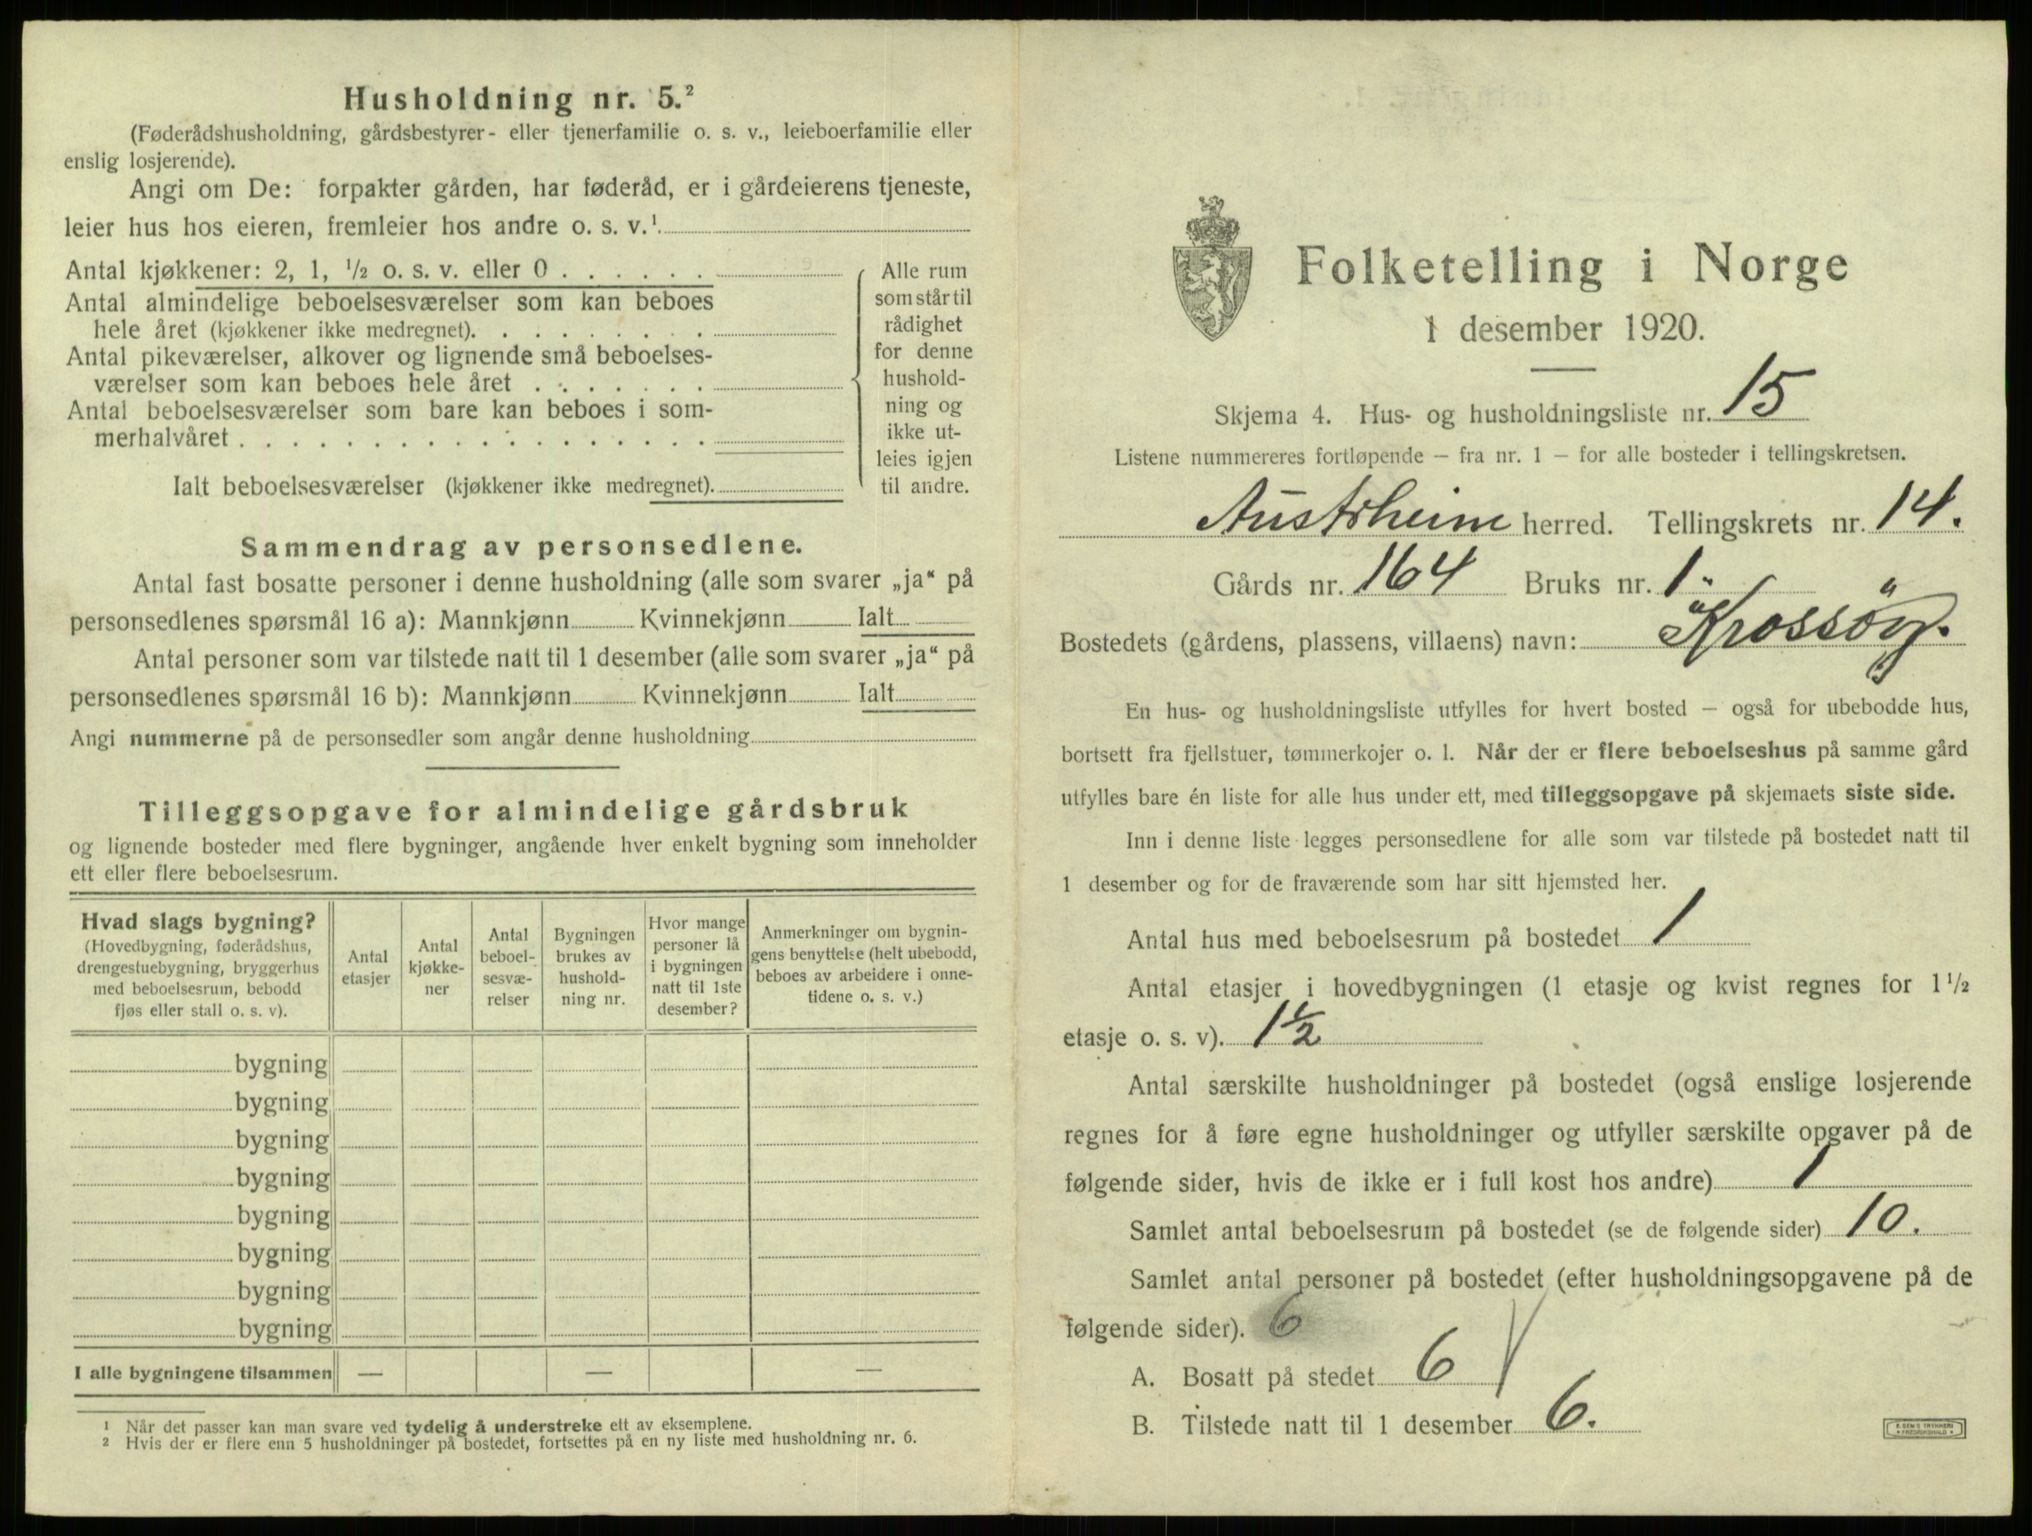 Husholdning nr. 5.²
(Føderådshusholdning, gårdsbestyrer- eller tjenerfamilie o. s. v., leieboerfamilie eller
enslig losjerende).
Angi om De: forpakter gården, har føderåd, er i gårdeierens tjeneste,
leier hus hos eieren, fremleier hos andre o. s. v.¹
Antal kjøkkener: 2, 1, ½ o. s. v. eller 0 . . . . . .
Antal almindelige beboelsesværelser som kan beboes
hele året (kjøkkener ikke medregnet). . . . . . . . .
Antal pikeværelser, alkover og lignende små beboelses-
værelser som kan beboes hele året . . . . . . .
Antal beboelsesværelser som bare kan beboes i som-
merhalvåret . . . . . . . . . . . . . . . . . .
Ialt beboelsesværelser (kjøkkener ikke medregnet).
Alle rum
som står til
rådighet
for denne
hushold-
ning og
ikke ut-
leies igjen
til andre.
Sammendrag av personsedlene.
Antal fast bosatte personer i denne husholdning (alle som svarer „ja“ på
personsedlenes spørsmål 16 a): Mannkjønn Kvinnekjønn Ialt
Antal personer som var tilstede natt til 1 desember (alle som svarer „ja“ på
personsedlenes spørsmål 16 b): Mannkjønn Kvinnekjønn Ialt
Angi nummerne på de personsedler som angår denne husholdning
Tilleggsopgave for almindelige gårdsbruk
og lignende bosteder med flere bygninger, angående hver enkelt bygning som inneholder
ett eller flere beboelsesrum.
Hvad slags bygning?
(Hovedbygning, føderådshus,
drengestuebygning, bryggerhus
med beboelsesrum, bebodd
fjøs eller stall o. s. v).
Antal
etasjer
Antal
kjøkke-
ner
Antal
beboel-
sesvæ-
relser
Bygningen
brukes av
hushold-
ning nr.
Hvor mange
personer lå
i bygningen
natt til 1ste
desember?
Anmerkninger om bygnin-
gens benyttelse (helt ubebodd,
beboes av arbeidere i onne-
tidene o. s. v.)
bygning
bygning
bygning
bygning
bygning
bygning
bygning
bygning
I alle bygningene tilsammen — — —
¹ Når det passer kan man svare ved tydelig å understreke ett av eksemplene.
² Hvis der er flere enn 5 husholdninger på bostedet, fortsettes på en ny liste med husholdning nr. 6.
Folketelling i Norge
1 desember 1920.
Skjema 4. Hus- og husholdningsliste nr. 15
Listene nummereres fortløpende – fra nr. 1 – for alle bosteder i tellingskretsen.
Austrheim herred. Tellingskrets nr. 14.
Gårds nr. 164 Bruks nr. 1
Bostedets (gårdens, plassens, villaens) navn: Krossöy.
En hus- og husholdningsliste utfylles for hvert bosted – også for ubebodde hus,
bortsett fra fjellstuer, tømmerkojer o. l. Når der er flere beboelseshus på samme gård
utfylles bare én liste for alle hus under ett, med tilleggsopgave på skjemaets siste side.
Inn i denne liste legges personsedlene for alle som var tilstede på bostedet natt til
1 desember og for de fraværende som har sitt hjemsted her.
Antal hus med beboelsesrum på bostedet 1
Antal etasjer i hovedbygningen (1 etasje og kvist regnes for 1½
etasje o. s. v). 1½
Antal særskilte husholdninger på bostedet (også enslige losjerende
regnes for å føre egne husholdninger og utfyller særskilte opgaver på de
følgende sider, hvis de ikke er i full kost hos andre) 1
Samlet antal beboelsesrum på bostedet (se de følgende sider) 10.
Samlet antal personer på bostedet (efter husholdningsopgavene på de
følgende sider). 6
A. Bosatt på stedet 6
B. Tilstede natt til 1 desember 6.